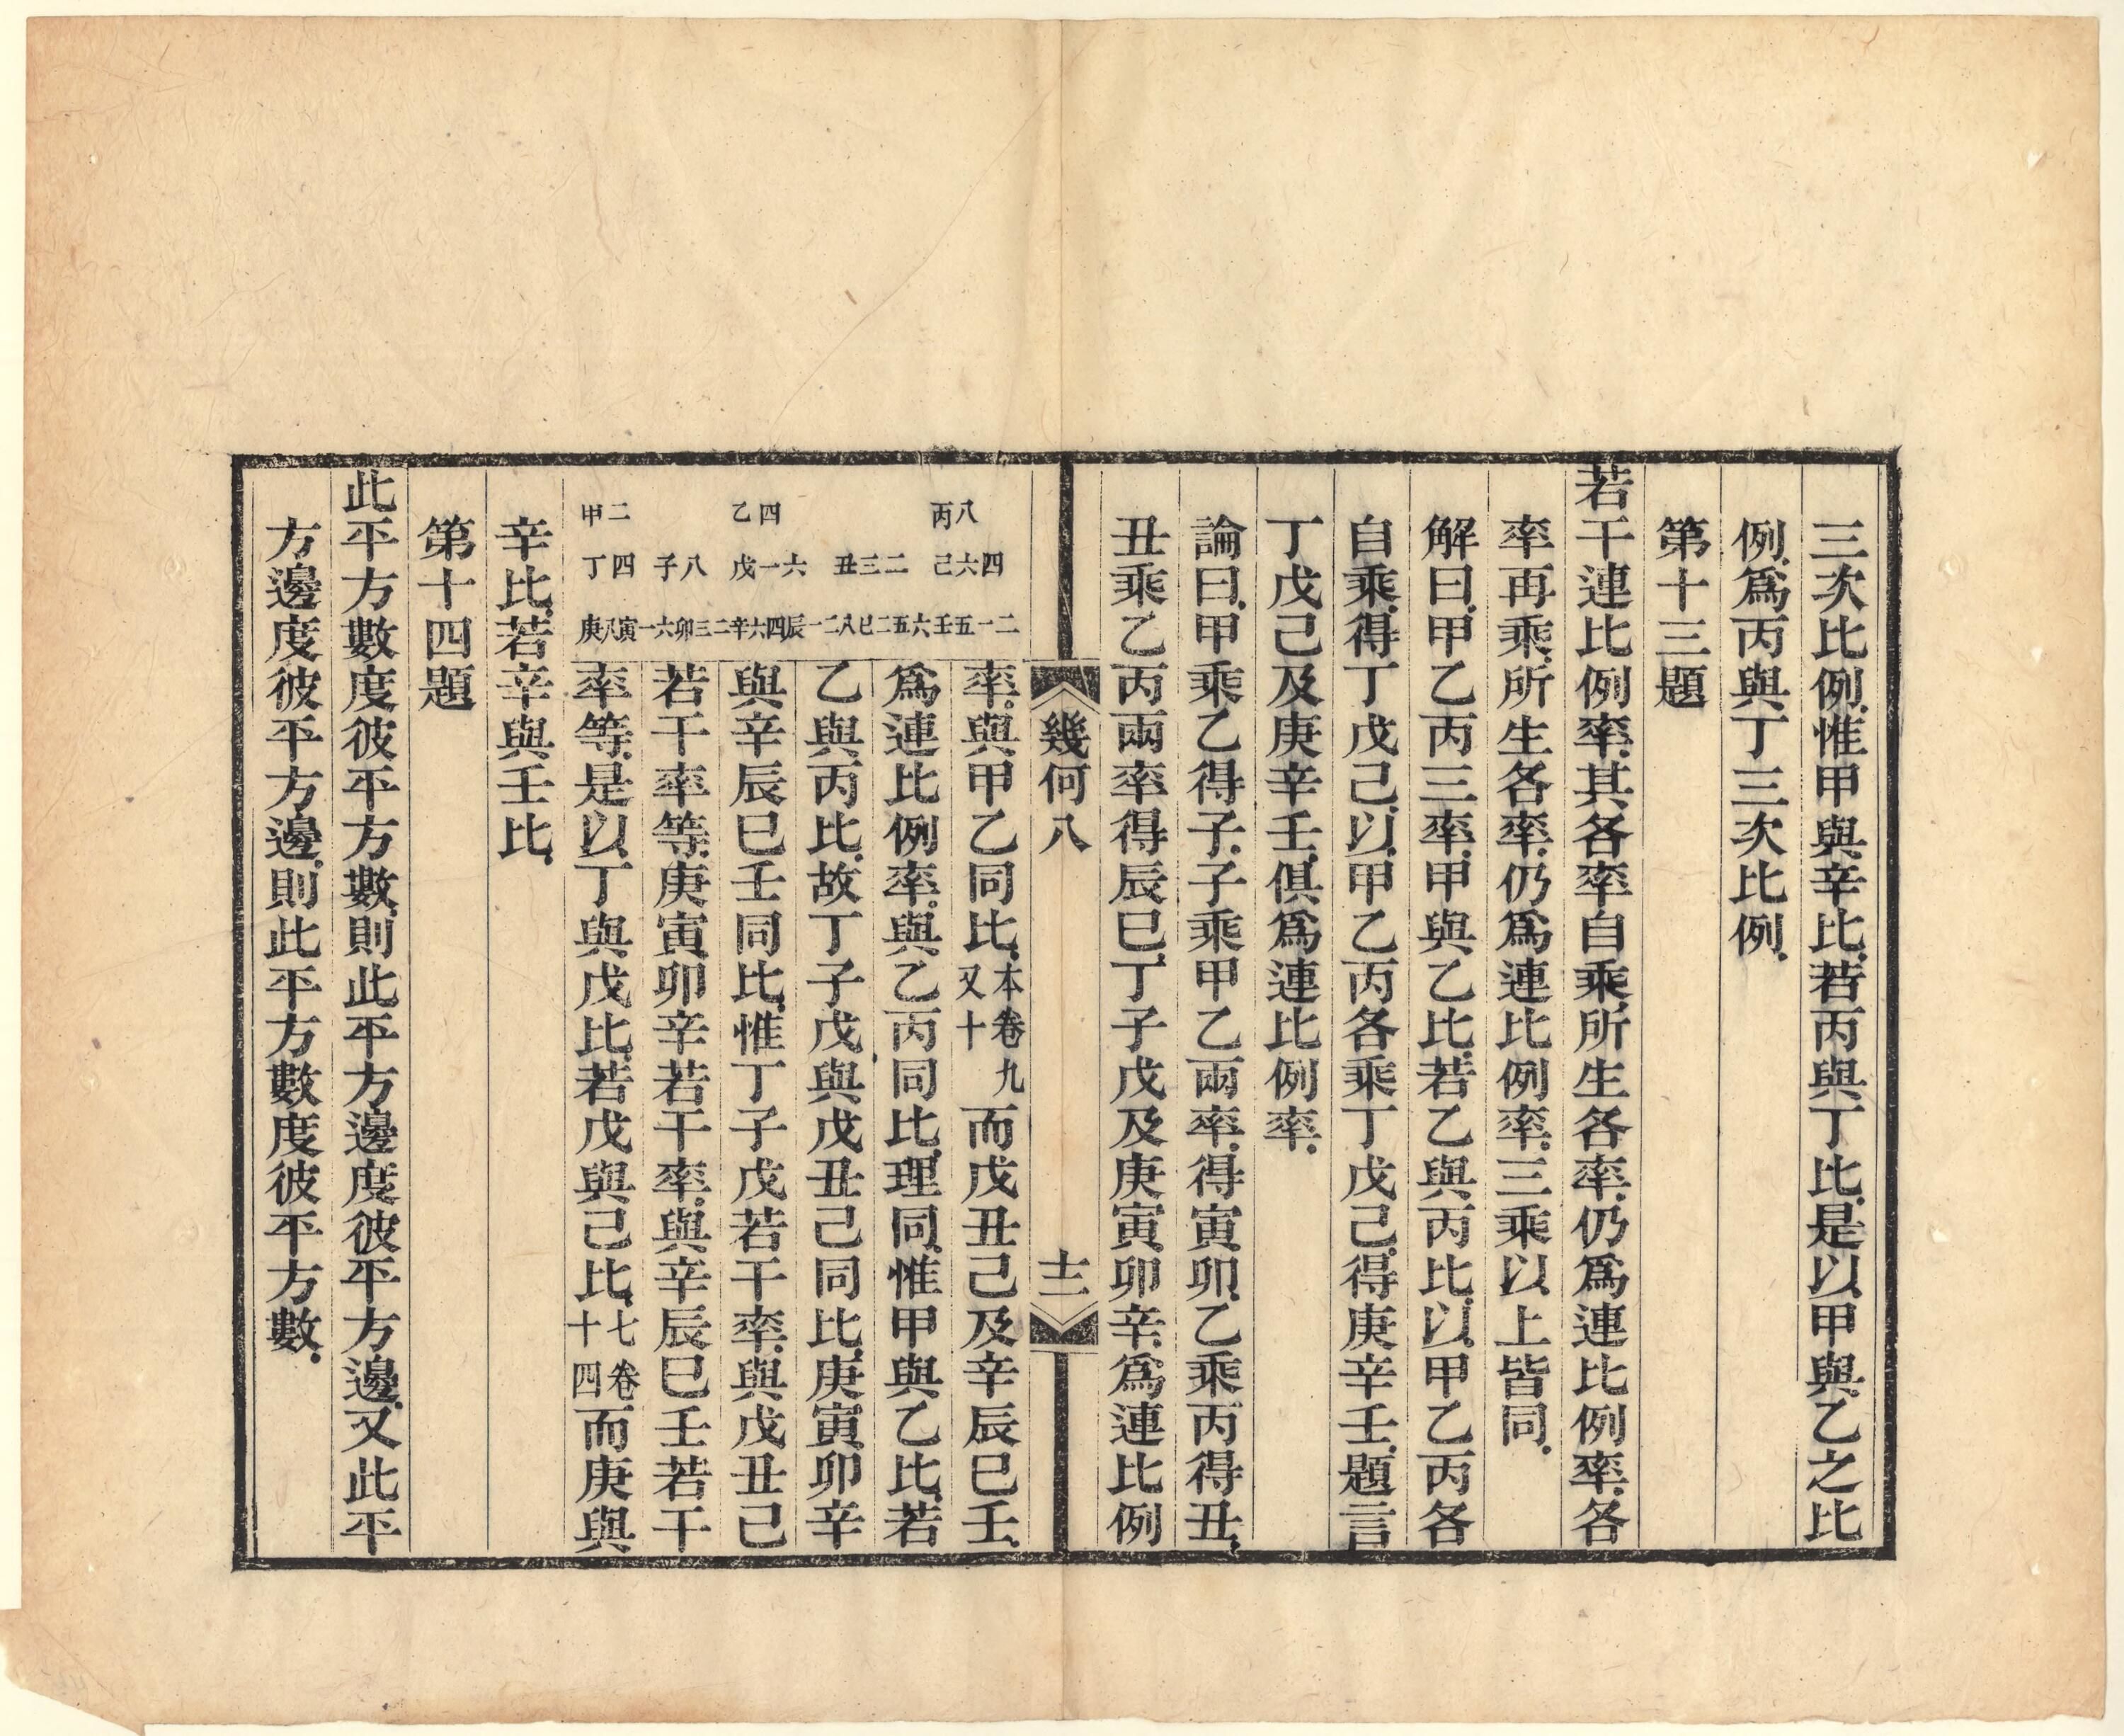 三次比例.惟甲與辛比.若丙與丁比.是以甲與乙之比
例.爲丙與丁三次比例.
第十三題
若干連比例率.其各率自乘.所生各率.仍爲連比例率.各
率再乘.所生各率.仍爲連比例率.三乘以上皆同.
解曰.甲乙丙三率.甲與乙比.若乙與丙比.以甲乙丙各
自乘.得丁戊己.以甲乙丙各乘丁戊己.得庚辛壬.題言
丁戊己及庚辛壬.俱爲連比例率.
論曰.甲乘乙得子.子乘甲乙兩率.得寅卯.乙乘丙得丑.
丑乘乙丙兩率得辰巳.丁子戊及庚寅卯辛.爲連比例
幾何八
十二
率.與甲乙同比.本卷九又十而戊丑己及辛辰巳壬.
爲連比例率.與乙丙同比.理同.惟甲與乙比.若
乙與丙比.故丁子戊與戊丑己同比.庚寅卯辛
與辛辰巳壬同比.惟丁子戊若干率.與戊丑己
若干率等.庚寅卯辛若干率.與辛辰巳壬若干
率等.是以丁與戊比.若戊與己比.七卷十四而庚與
八丙 四乙 二甲
四六己 二三丑 六一戊 八子 四丁
二一五壬 六五二巳 八二一辰 四六辛 二三卯 六一寅 八庚
辛比.若辛與壬比.
第十四題
此平方數度彼平方數.則此平方邊度彼平方邊.又此平
方邊度彼平方邊.則此平方數度彼平方數.